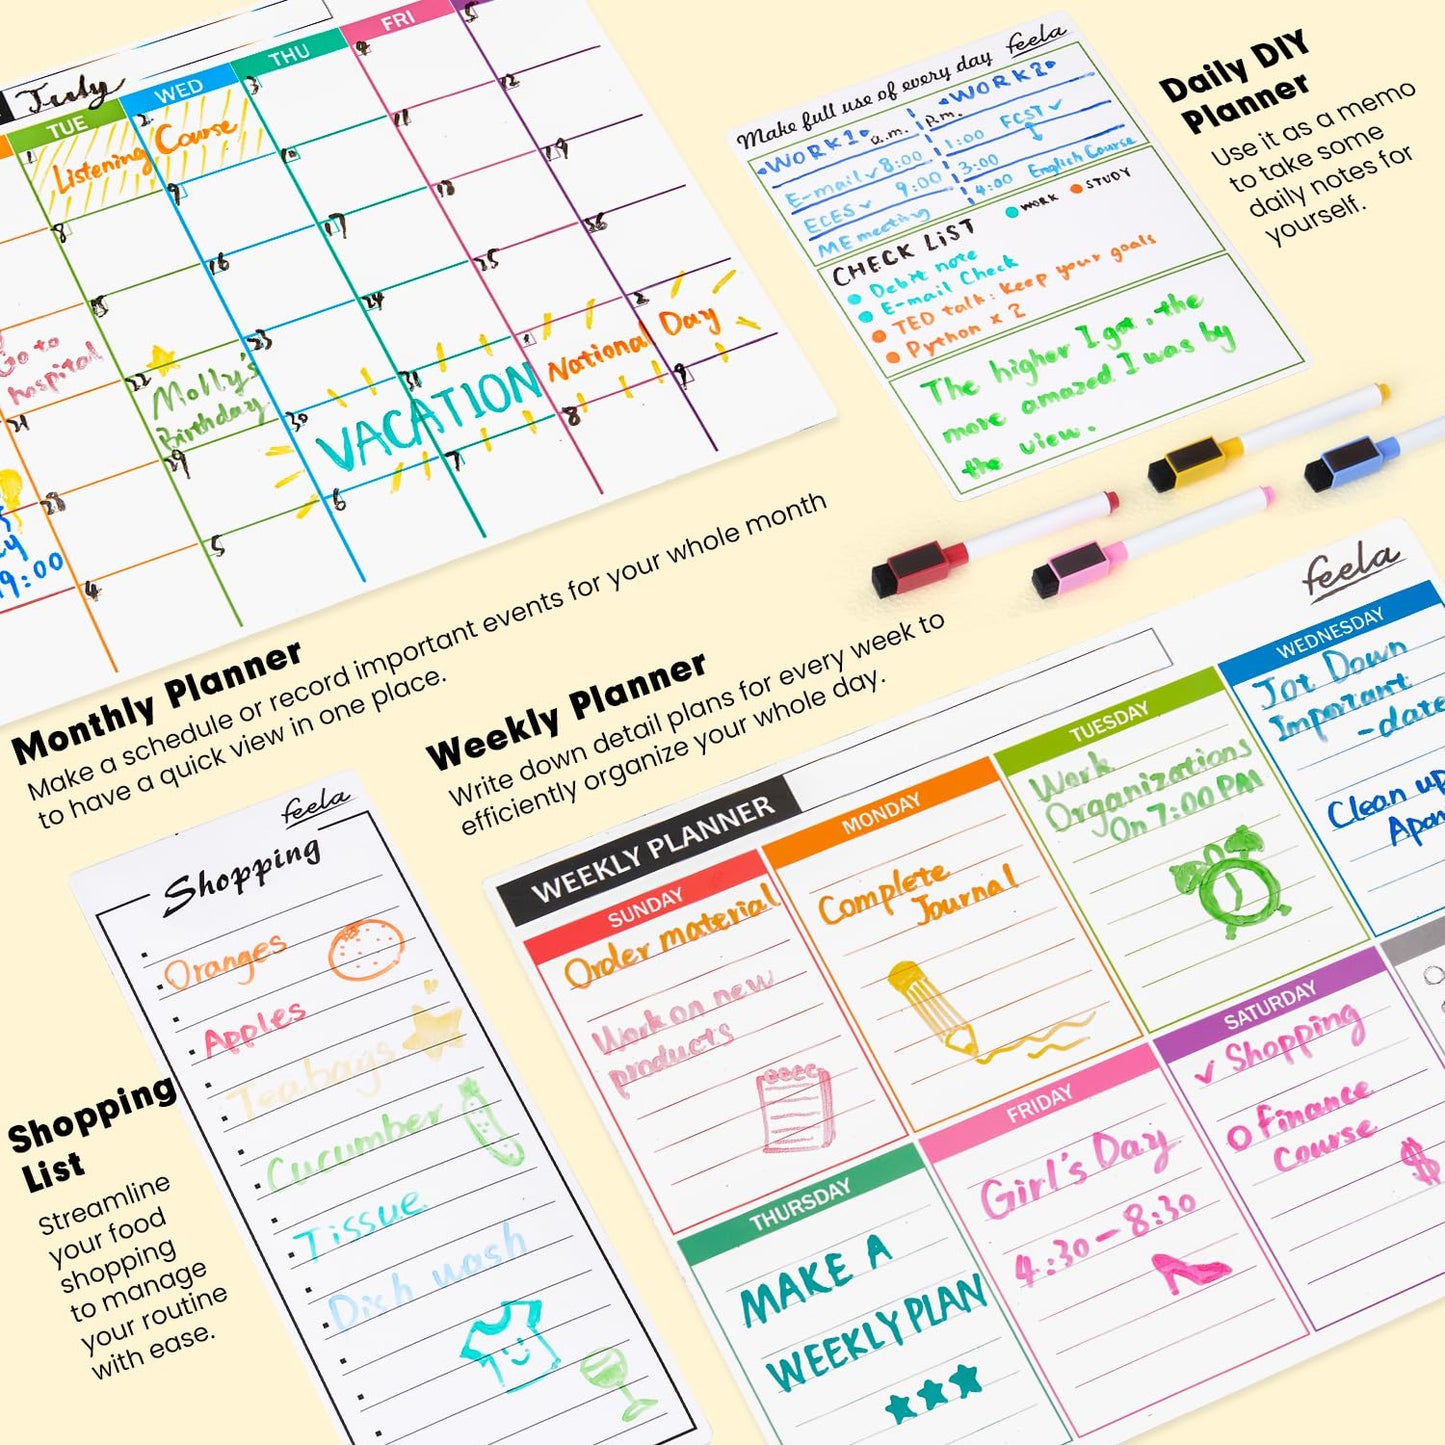 July
TUE
WED
THU
FRI
1
2
3
4
5
Listening Course
8
9
10
11
12
15
16
17
18
19
Go to
hospital
22
23
24
25
26
Molly's
Birthday
21
29
30
31
1
2
VACATION
National Day
28
19:00
4
5
6
7
8
9
Make full use of every day
feela
WORK1
a.m.
E-mail ✓ 8:00
ECES ✓ 9:00
ME meeting
P.m.
WORK2
1:00 FCST ✓
3:00
4:00 English Course
CHECK LiST
WORK
STUDY
Debit note
E-mail Check
TED talk: Keep your goals
Python x 2
The higher I got, the
more amazed I was by
the view.
Daily DIY
Planner
Use it as a memo
to take some
daily notes for
yourself.
Monthly Planner
Make a schedule or record important events for your whole month
to have a quick view in one place.
Weekly Planner
Write down detail plans for every week to
efficiently organize your whole day.
feela
WEEKLY PLANNER
SUNDAY
Order material
Work on new
products
MONDAY
Complete
Journal
TUESDAY
Work
Organizations
On 7:00 PM
WEDNESDAY
Jot Down
Important
-date
Clean up
THURSDAY
MAKE A
WEEKLY PLAN
FRIDAY
Girl's Day
4:30-8:30
SATURDAY
✓ Shopping
O finance
course
$
Shopping
List
Streamline
your food
shopping
to manage
your routine
with ease.
feela
Shopping
Oranges
Apples
Teabags
Cucumber
Tissue
Dish wash